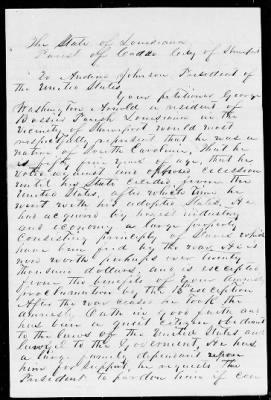 The State of Louisiana
Parish of Caddo City of Shreveport
To Andrew Johnson President of
the United States
Your petitioner George
Washington Arnold a resident of
Bossier Parish Louisiana in the
vicinity of Shreveport would most
respectfully represent that he was a
native of South Carolina, that he
is fifty four years of age, that he
voted against and opposed secession
until his State Ceded from the
United States after which time he
went with his adopted State, he
has acquired by honest industry
and economy a large property
Consisting principly of Slaves which
have been freed by the war. He is
now worth perhaps over twenty
thousand dollars, and is excepted
from the benefits of your
proclamation by the 13th exception
After the war ceased he took the
amnesty Oath in good faith and
has been a quiet citizen obedient
to the laws of the United States and
loyal to the Government, He has
a large family dependant upon
him for support, he requests the
President to pardon him if